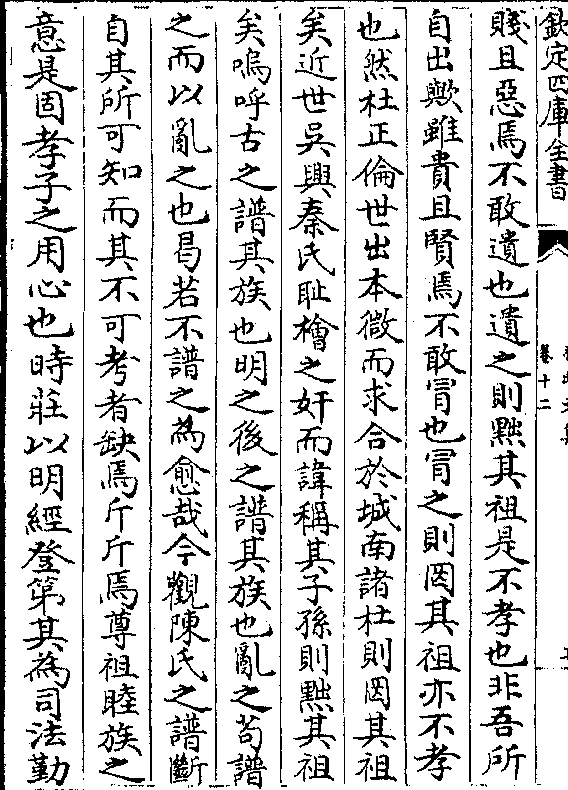 欽定四庫全書
卷十二
賤且惡焉不敢遺也遺之則黜其祖是不孝也非吾所
自出歟雖貴且賢焉不敢冐也冐之則罔其祖亦不孝
也然杜正倫世出本微而求合於城南諸杜則罔其祖
矣近世吳興秦氏恥檜之奸而諱稱其子孫則黜其祖
矣嗚呼古之譜其族也明之後之譜其族也亂之茍譜
之而以亂之也曷若不譜之為愈哉今觀陳氏之譜斷
自其所可知而其不可考者缺焉斤斤焉尊祖睦族之
意是固孝子之用心也時莊以明經登第其為司法勤